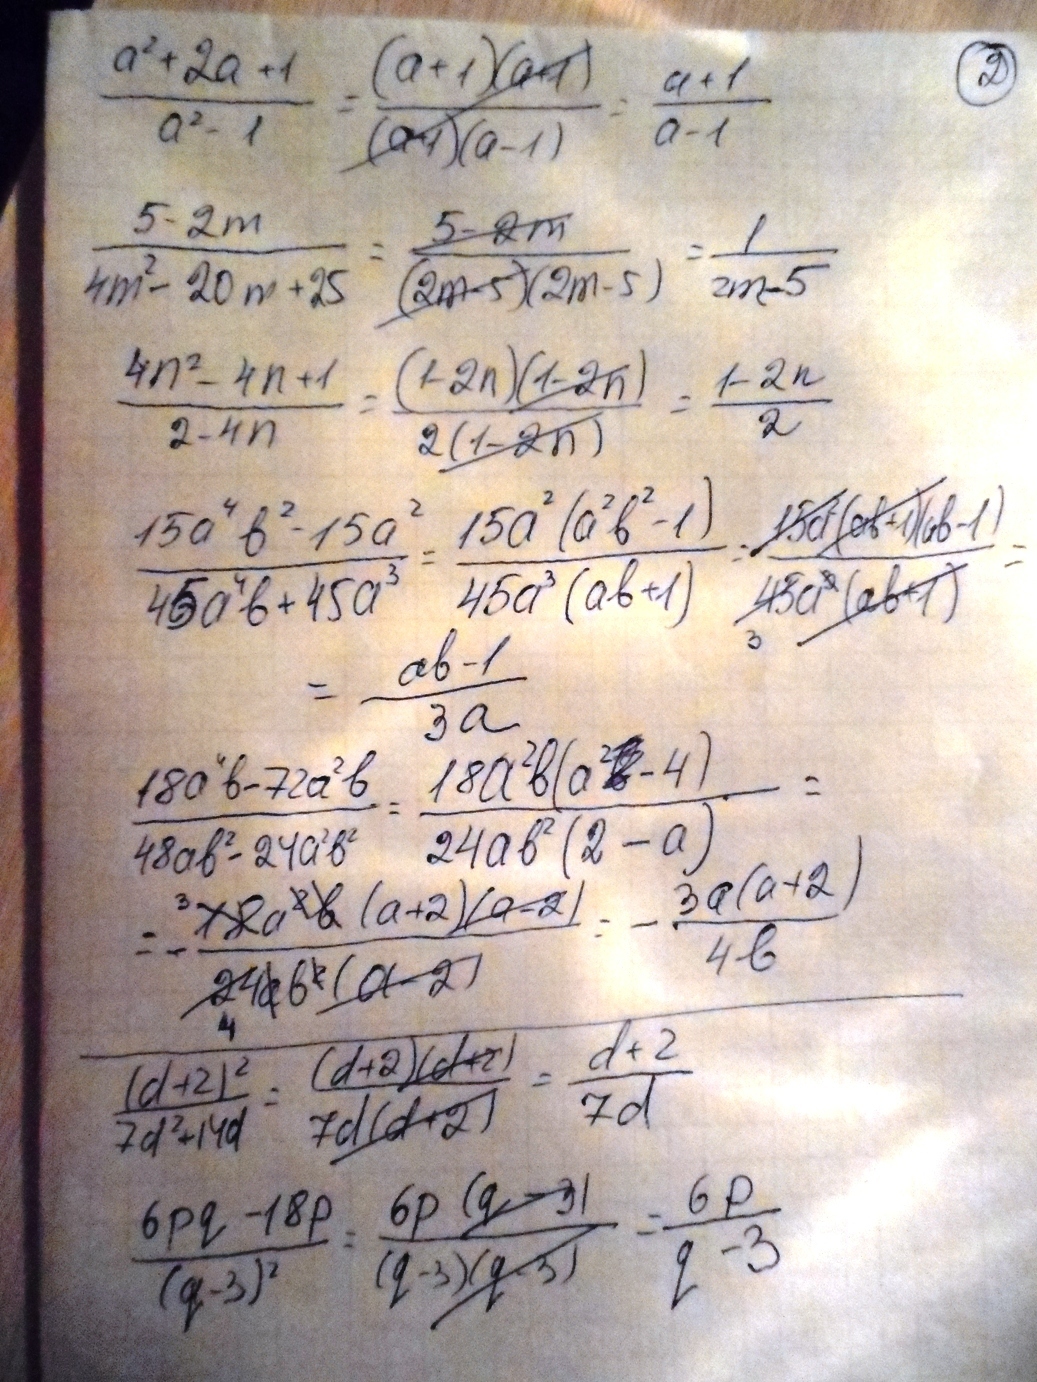 ②
(a²+2a+1)/(a²-1) = ((a+1)(a+1))/((a+1)(a-1)) = (a+1)/(a-1)
(5-2m)/(4m²-20m+25) = (5-2m)/((2m-5)(2m-5)) = 1/(2m-5)
(4n²-4n+1)/(2-4n) = ((1-2n)(1-2n))/(2(1-2n)) = (1-2n)/2
(15a⁴b²-15a²)/(45a⁴b+45a³) = (15a²(a²b²-1))/(45a³(ab+1)) = (15a²(ab+1)(ab-1))/(45a³(ab+1)) =
3
= (ab-1)/(3a)
(18a⁴b-72a²b)/(48ab²-24a²b²) = (18a²b(a²-4))/(24ab²(2-a)) =
= - (³18a²b(a+2)(a-2))/(24ab²(a-2)) = - (3a(a+2))/(4b)
4
(d+2)²/(7d²+14d) = ((d+2)(d+2))/(7d(d+2)) = (d+2)/(7d)
(6pq-18p)/(q-3)² = (6p(q-3))/((q-3)(q-3)) = 6p/(q-3)